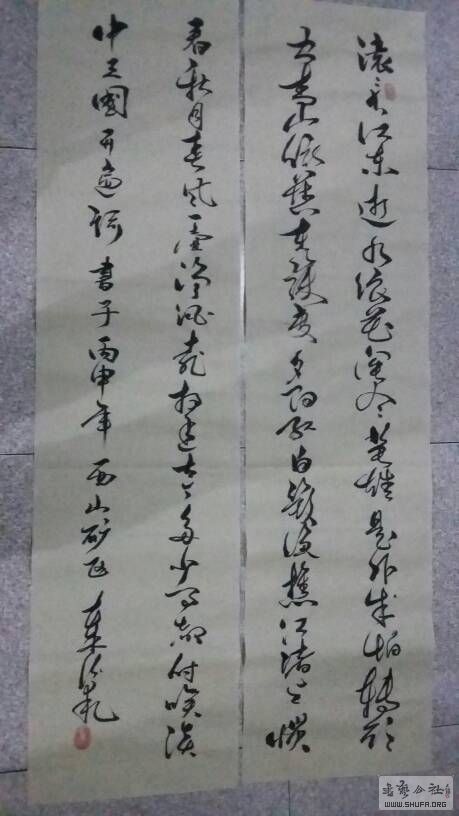 滚长江东逝水浪花淘尽英雄是非成败转头
空青山依旧在几度夕阳红白发渔樵江渚上惯
看秋月春风一壶浊酒喜相逢古今多少事都付笑谈
中三國开篇词 書于丙申年 西山矿区
书艺公社
WWW.SHUFA.ORG